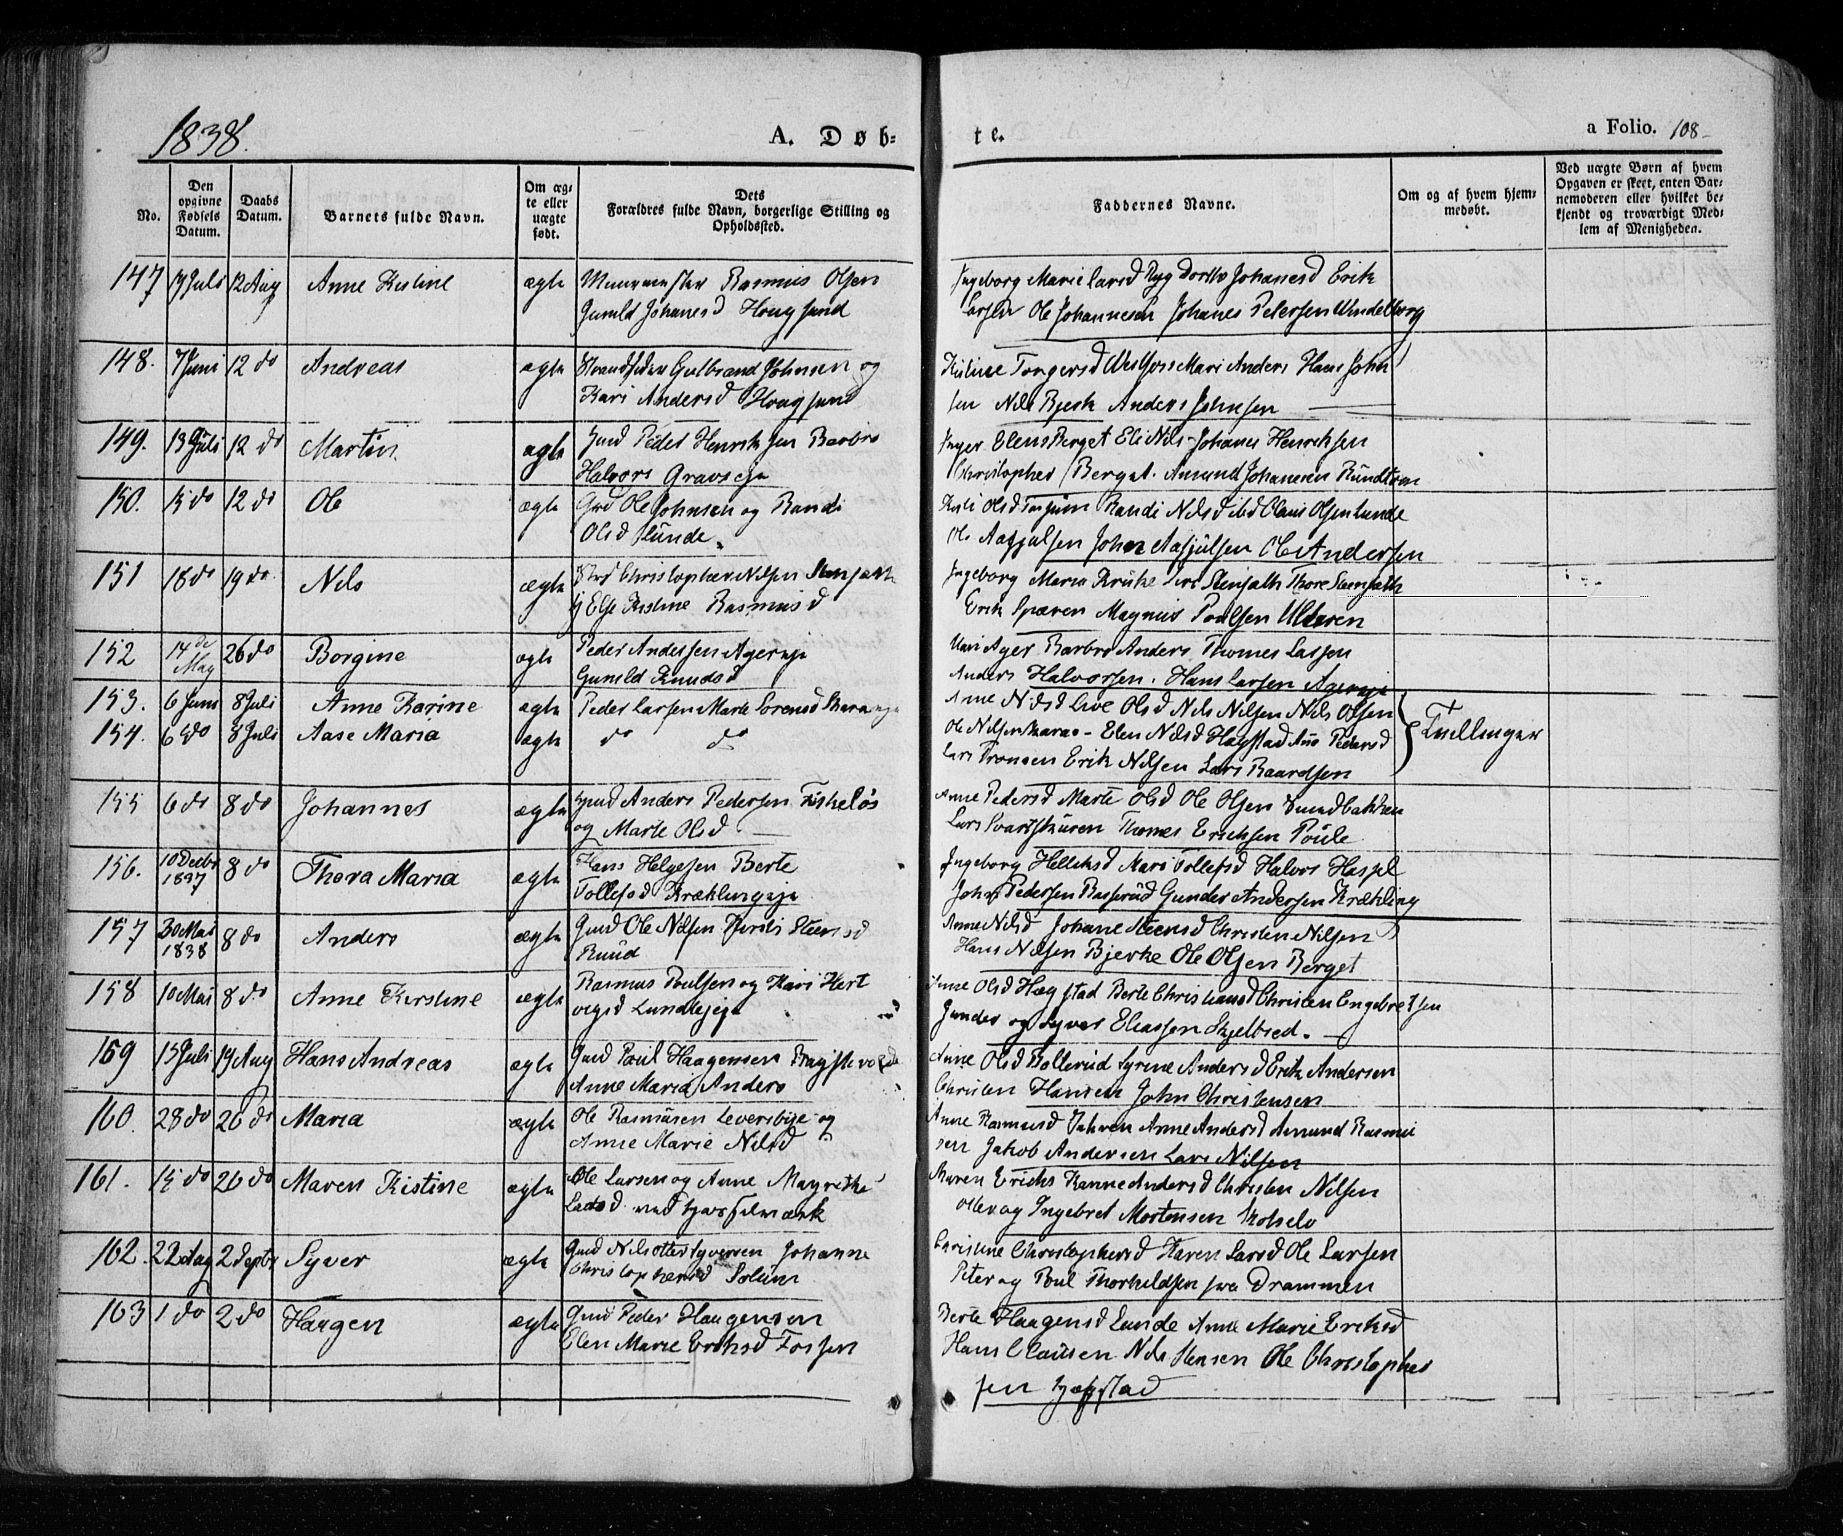 1838.
A. Døb-
te.
a Folio. 108
No.
Den opgivne Fødsels Datum.
Daabs Datum.
Barnets fulde Navn.
Om ægte eller uægte født.
Dets Forældres fulde Navn, borgerlige Stilling og Opholdssted.
Faddernes Navne.
Om og af hvem hjemmedøbt.
Ved uægte Børn af hvem Opgaven er skeet, enten Barnemoderen eller hvilket bekjendt og troværdigt Medlem af Menigheden.
147 Juli 12 Aug Anne Kistine ægte Rasmus Olsen
Gunild Johanesd Hougsund
Ingeborg Marie Larsd Ryg Dorthe Johanesd Erik
Larsen Ole Johannesen Johanes Petersen Windelborg
148. 7 Juni 12 do Andreas ægte Gulbrand Johnsen og
Kari Andersd Hougsund
Torgersd Mari Anders Hans John
sen Nils Bjerk Anders Johnsen
149. 13 Juli 12 do Martin ægte Gmd Peder Henriksen Barbro
Halvors Gravseje
Inger Elens Berget Eli Nils Johanes Henriksen
Christopher Berget Amund Johanesen Rundtom
150. 15 do 12 do Ole ægte Gmd Ole Johnsen og Randi
Olsd Lunde
Olsd Randi Nilsd Claus Olsen Lunde
Ole Aasjulsen John Aasjulsen Ole Andersen
151 18 do 19 do Nils ægte Christopher Nilsen
Else Kistine Rasmusd
Ingeborg Maria Kruke Stensæth Thore Stensæth
Erik Spæren Magnus Poulsen Ulleren
152 14de May 26 do Borgine ægte Peder Andersen Agereje
Gunild Knudsd
Ager Barbro Anders Thomes Larsen
Anders Halvorsen. Hans Larsen Agereje
153. 6 Juni 8 Juli Anne Karine ægte Peder Larsen Marte Sorensd
Anne Nilsd Live Olsd Nils Nilsen Nils Olsen
Tvillinger
154. 6 do 8 Juli Aase Maria ægte do do
Ole Nilsen Elen Nilsd Hagstad Ane Pedersd
Lars Tronsen Erik Nilsen Lars Baardsen
155 6 do 8 do Johannes ægte Gmd Anders Pedersen Fiskeløs
og Marte Olsd
Anne Pedersd Marte Olsd Ole Olsen
Lars Svartskuren Thomes Erichsen Poule
156. 10 Decbr 1837 8 do Thora Maria ægte Hans Helgesen Berte
Tollefsd Kræklingeje
Ingeborg Helleksd Mari Tollefsd Halvor Haspel
John Pedersen Basserud Gunder Andersen Krækling
157 30 Mai 1838 8 do Anders ægte Gmd Ole Nilsen Steensd
Ruud
Anne Nilsd Johane Steensd Christen Nilsen
Hans Nilsen Bjerke Ole Olsen Berget
158 10 Mai 8 do Anne Kirstine ægte Rasmus Poulsen og Kari Hert
vigsd Lundesjeje
Anne Olsd Hægstad Berte Christiansd Christen Engebretsen
Gunder og Syver Eliassen Skjelbred.
159 15 Juli 19 Aug Hans Andreas ægte Gmd Paul Haagensen
Anne Maria Anders
Anne Olsd Bollerud Syrine Andersd Erik Andersen
Christen Hansen John Christensen
160. 28 do 26 do Maria ægte Ole Rasmusen Leversbye og
Anne Marie Nilsd
Anne Rasmusd Jahren Anne Andersd Amund Rasmu
sen Jakob Andersen Lars Nilsen
161. 15 do 26 do Maren Kistine ægte Ole Larsen og Anne Magrethe
Larsd ved
Maren Erichs Kanne Andersd Christen Nilsen
Otter og Ingebret Mortensen
162. 22 Aug 2 Septbr Syver ægte Gmd Nils Otter Syversen Johanne
Christophersd Solum
Christine Christophersd Karen Larsd Ole Larsen
Peter og Poul Thorkildsen fra Drammen
163 1 do 2 do Haagen ægte Gmd Peder Haagensen
Elen Marie Eriksd Fossen
Berte Haagensd Lunde Anne Marie Eriksd
Hans Clausen Nils Hensen Ole Christopher
sen Hægstad